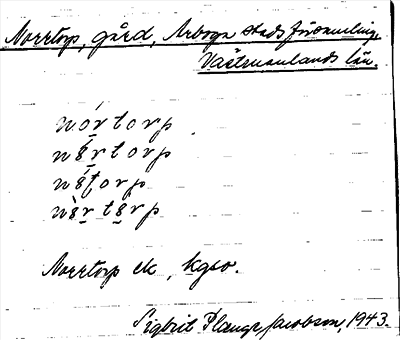 Norrtorp, gård, Arboga stads församling,
Västmanlands län.
nórtorp
nę́rtorp
nę́torp
nę̀rtęrp
Norrtorp ek, kgso.
Sigbrit Plange Jacobson, 1943.